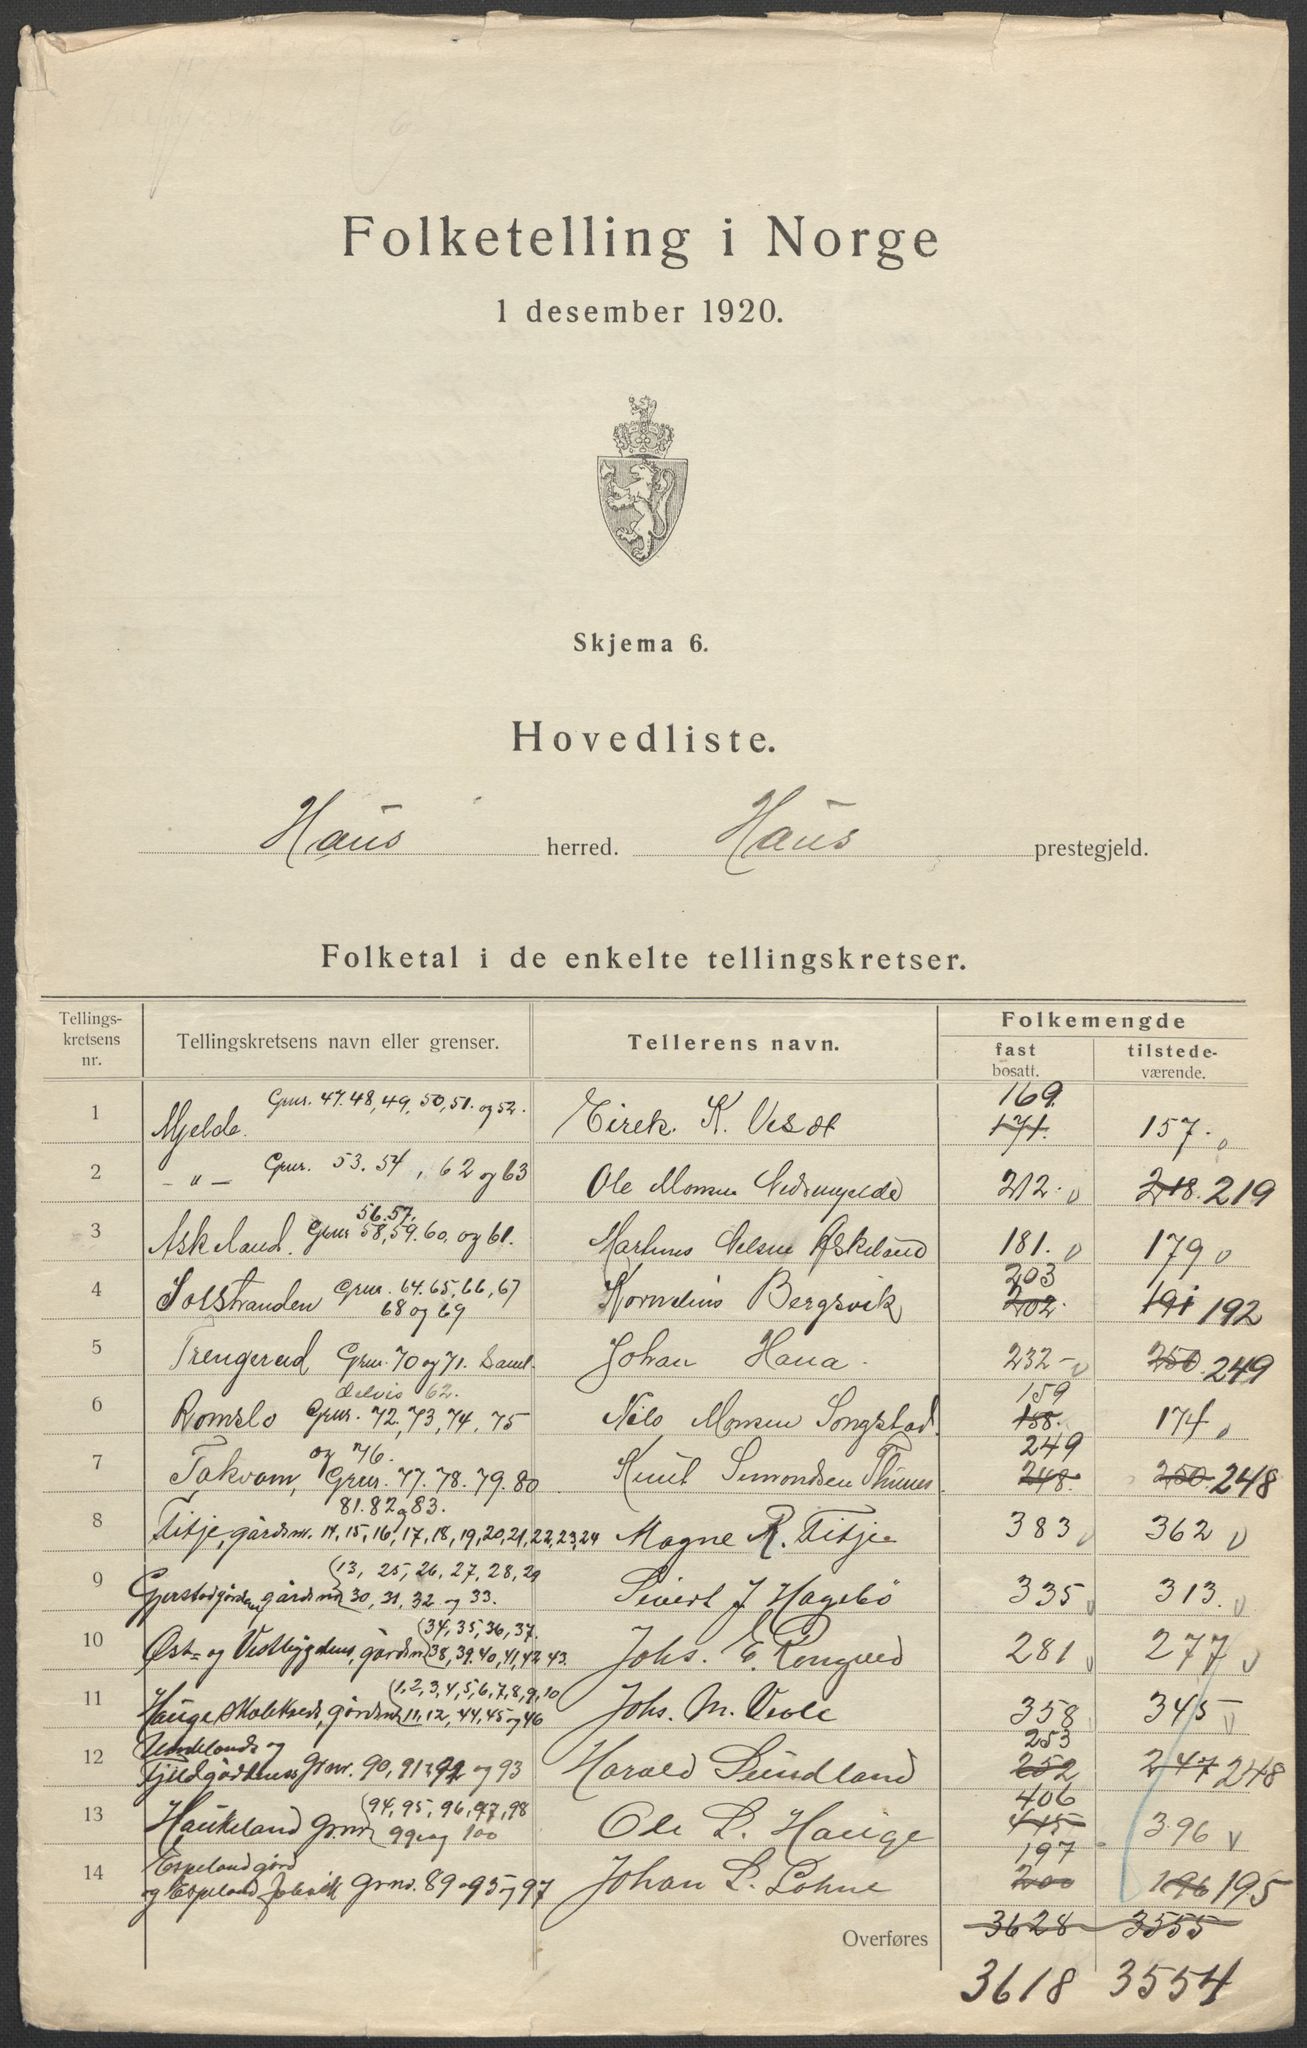 Folketelling i Norge
1 desember 1920.
Skjema 6.
Hovedliste.
Haus herred. Haus prestegjeld.
Folketal i de enkelte tellingskretser.
Tellings-kretsens nr. Tellingskretsens navn eller grenser. Tellerens navn. Folkemengde
fast bosatt. tilstede-værende.
169.
1 Mjelde. Gnr. 47. 48, 49, 50, 51. og 52. Eirek K. 171. 157.
2 - " - Gnr. 53. 54, 62 og 63 Ole Monsen Nedremjelde 212. 218. 219
56. 57.
3 Askeland. Gnr 58, 59. 60, og 61. Martinus Nelsen Askeland 181. 179
203
4 Solstranden Gnr. 64. 65, 66, 67 Kornelius Bergsvik 202. 191 192
68 og 69
5 Trengereid Gnr. 70 og 71. Saml. Johan Hana. 232- 250. 249
delvis 62. 159
6 Romslo Gnr. 72, 73, 74, 75 Nils Monsen Songstad. 158. 174
og 76. 249
7 Takvam, Gnr. 77. 78. 79. 80 Knut Simondsen 248. 250. 248
81. 82 og 83.
8 Titje, gårdsnr. 14, 15, 16, 17, 18, 19, 20, 21, 22, 23, 24 Magne R. Titje 383 362
13, 25, 26, 27, 28, 29
9 gårdsnr 30, 31, 32 og 33. Sivert J Hagebö 335 313.
34, 35, 36, 37.
10 Øst- og Vestbygdens, gårdsnr 38, 39. 40, 41, 42 43. Johs. E. 281 277
1, 2, 3, 4, 5, 6, 7, 8, 9, 10
11 Hauge skolekreds, gårdsnr 11, 12, 44, 45 og 46 Johs. M. 358 345
og 253
12 Gnr. 90, 91 92 og 93 Harald Sundland 252 247 248
94, 95, 96, 97, 98 406
13 Haukeland Gnr 99 og 100 Ole L. Hauge 415 396
Espeland gård 197
14 og Espeland Gnr. 89 og 95 og 97 Johan L. Lohne 200 196 195
Overføres 3628 3555
3618 3554